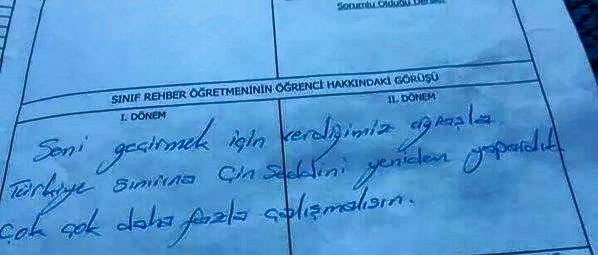 Sorumlu Olduğu Dersler
SINIF REHBER ÖĞRETMENİNİN ÖĞRENCİ HAKKINDAKİ GÖRÜŞÜ
I. DÖNEM II. DÖNEM
Seni geçirmek için verdiğimiz uğraşla
Türkiye sınırına Çin Seddini yeniden yapardık
Çok çok daha fazla çalışmalısın.